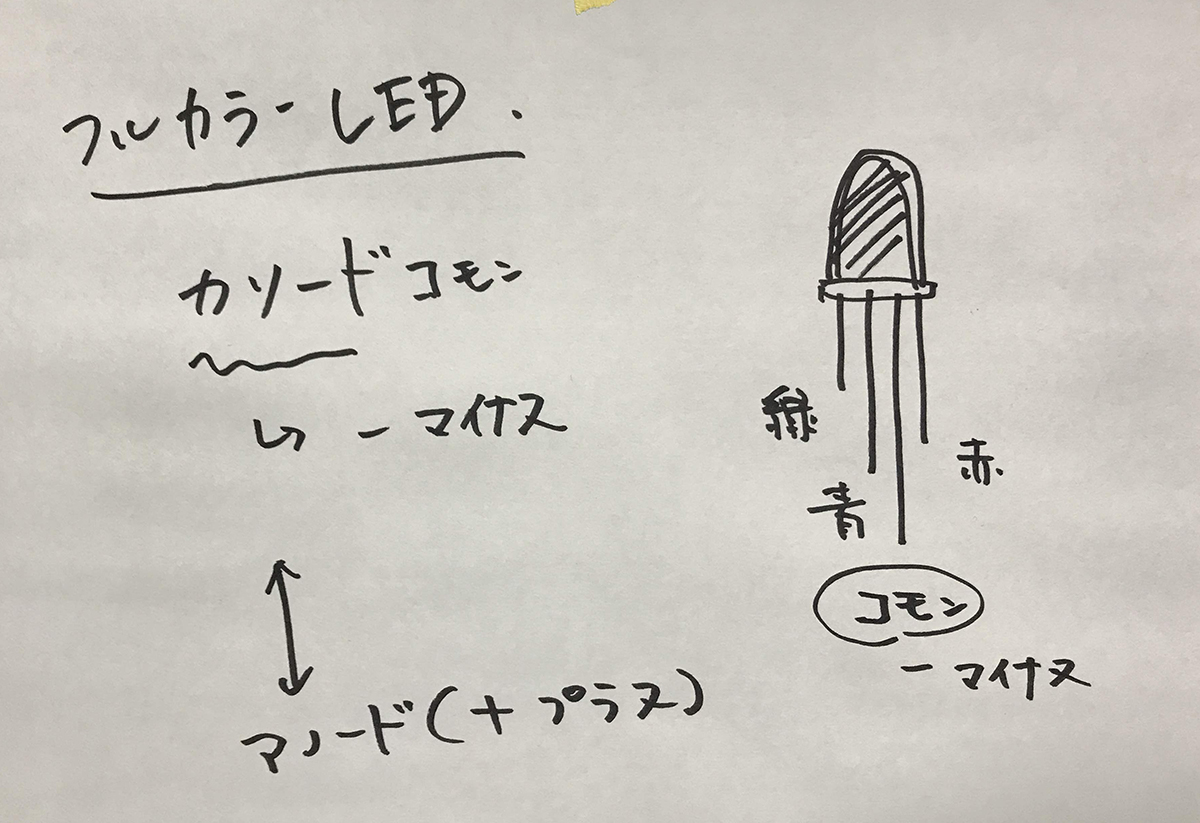 フルカラーLED.
カソードコモン
↳ − マイナス
アノード(+プラス)
緑
赤
青
コモン
− マイナス